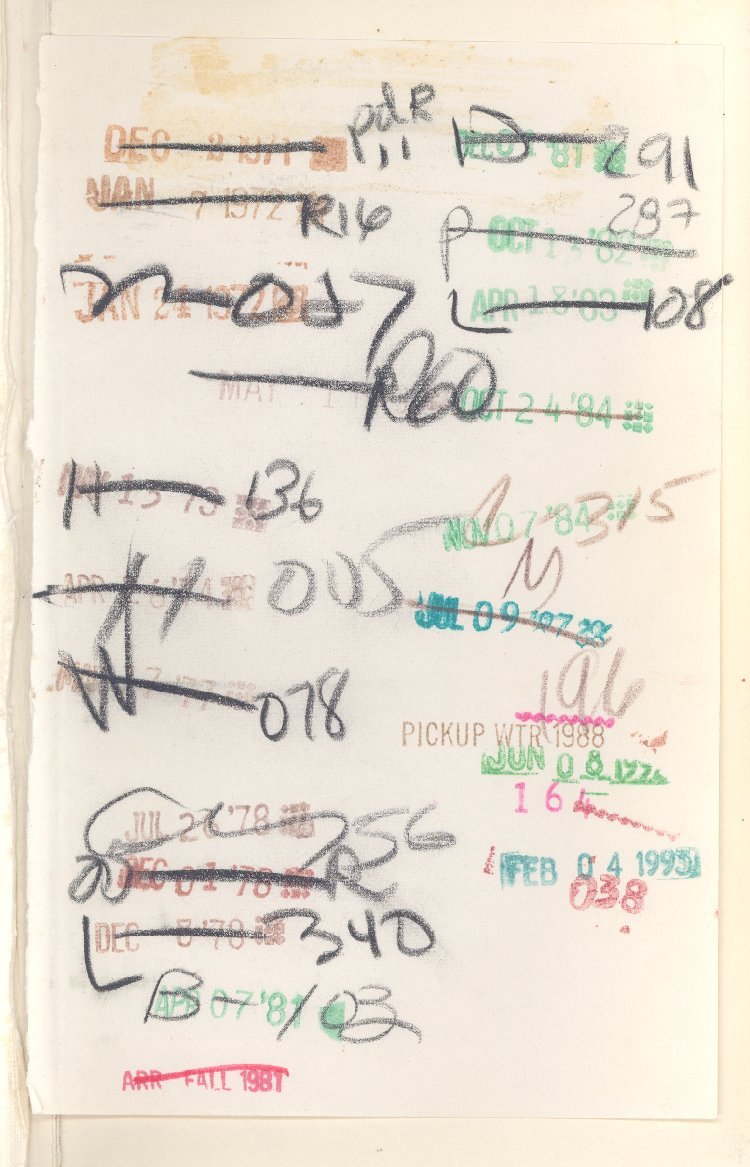 DEC 8 1971 pdR
JAN 7 1972 R16
JAN 24 1972 017
MAY 1 R60
H 136
APR 005
W 078
JUL 20 '78 256
DEC 01 '78 R
DEC 5 '78 L 340
APR 07 '81 B-103
ARR FALL 1981
'81 D 291
OCT '82 P 297
APR 18 '83 L 108
OCT 24 '84
NOV 07 '84 L-315
M
JUL 09 '87
196
PICKUP WTR 1988
JUN 08
164
FEB 04 1995
038